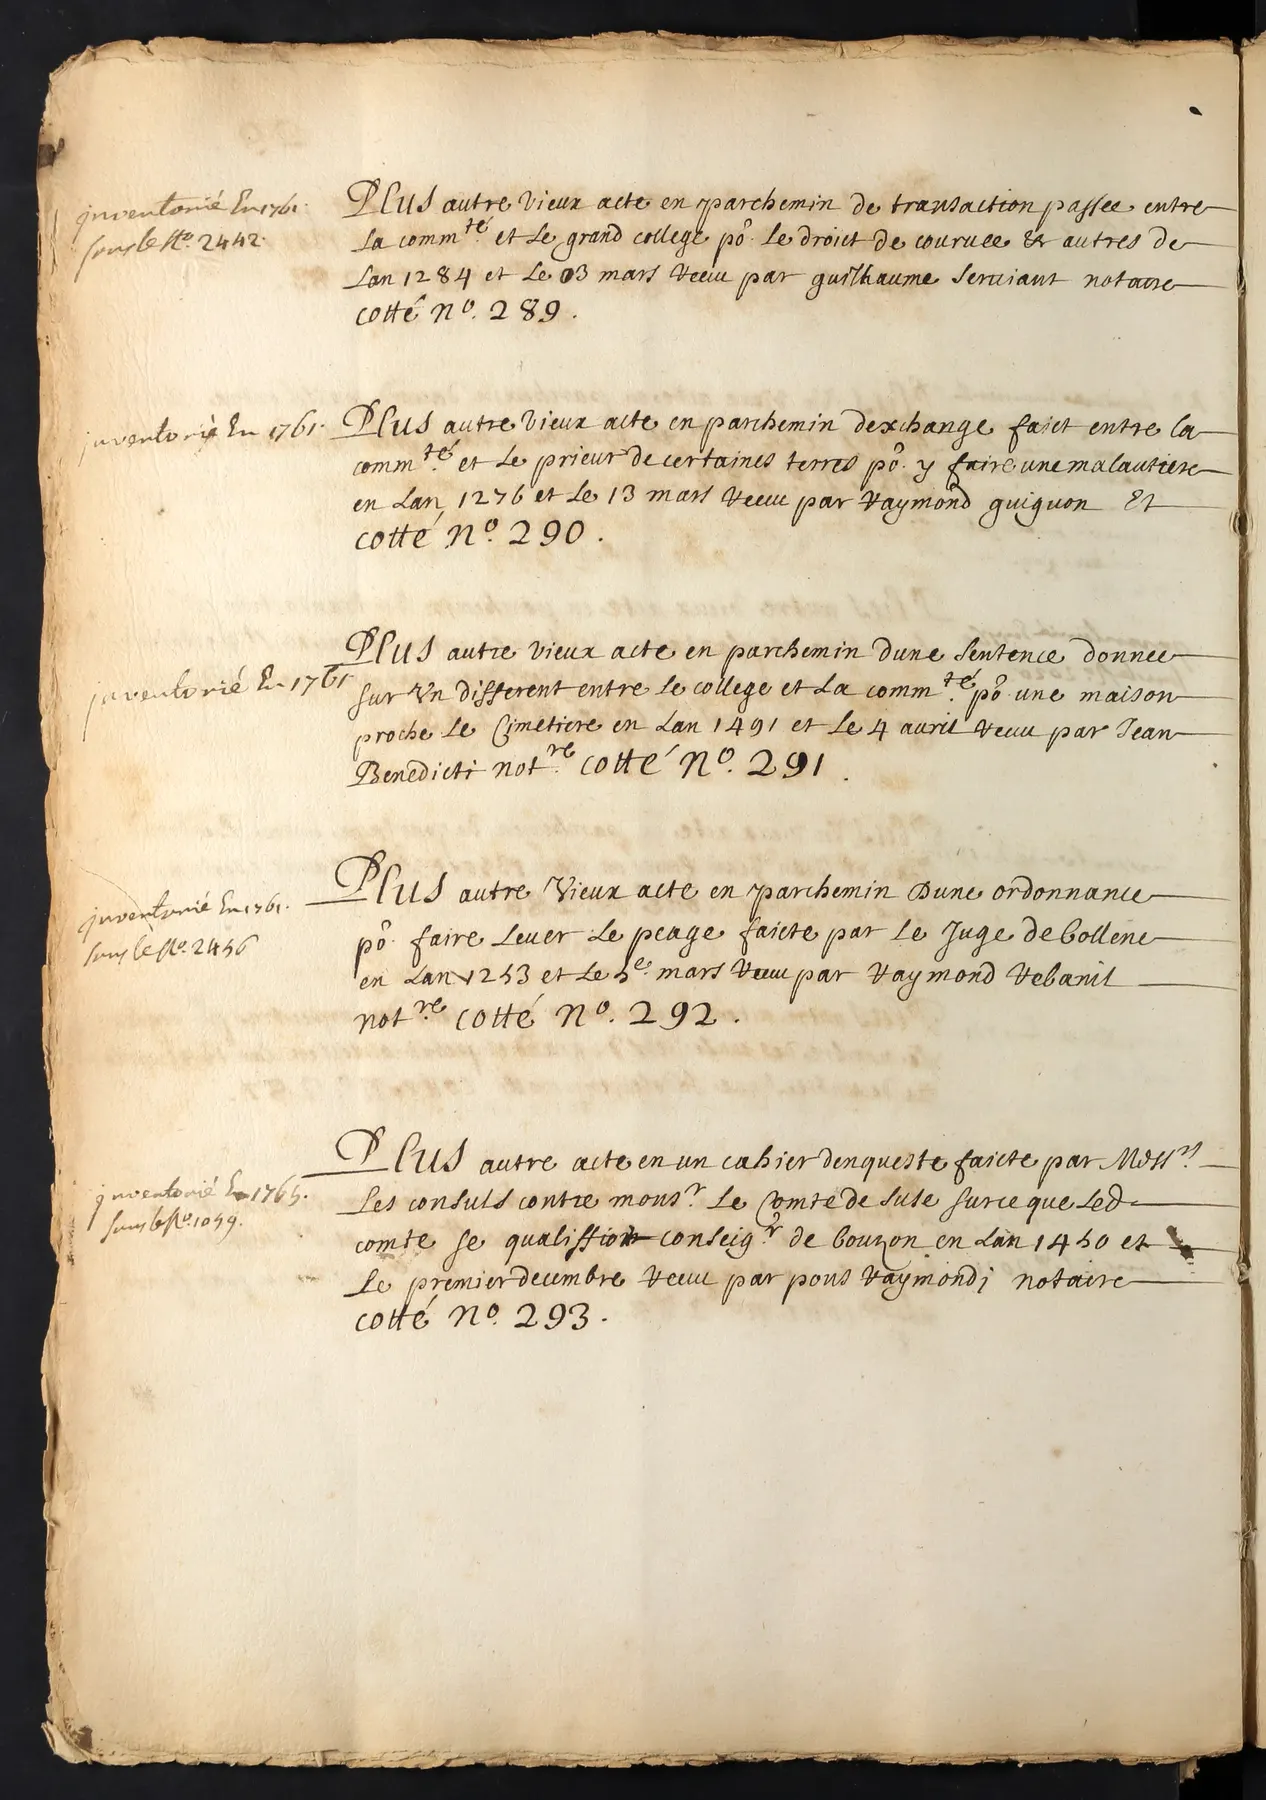 inventorié En 1761.
sous le No. 2442.
Plus autre vieux acte en parchemin de transaction passee entre
La comm.té et Le grand college pō. Le droict de couruee & autres de
Lan 1284 et Le 03 mars receu par guilhaume seruiant notaire
cotté no. 289.
inventorié En 1761.
Plus autre vieux acte en parchemin dexchange faict entre la
comm.té et Le prieur de certaines terres pō. y faire une malautiere
en Lan 1276 et Le 13 mars receu par raymond guiguon Et
cotté no. 290.
inventorié En 1761
Plus autre vieux acte en parchemin dune sentence donnee
sur un different entre Le college et La comm.té pō. une maison
proche Le Cimetiere en Lan 1491 et Le 4 avril receu par Jean
Benedicti not.re cotté no. 291.
inventorié En 1761.
sous le No. 2456
Plus autre vieux acte en parchemin dune ordonnance
pō. faire Leuer Le peage faicte par Le Juge de bollene
en Lan 1253 et Le 5e. mars receu par raymond rebanil
not.re cotté no. 292.
inventorié En 1765.
sous le No. 1059.
Plus autre acte en un cahier denqueste faicte par Mess.rs
Les consuls contre mons.r Le Comte de suse sur ce que Led
comte se qualiffioit conseig.r de bouzon en Lan 1450 et
Le premier decembre receu par pons raymondi notaire
cotté no. 293.